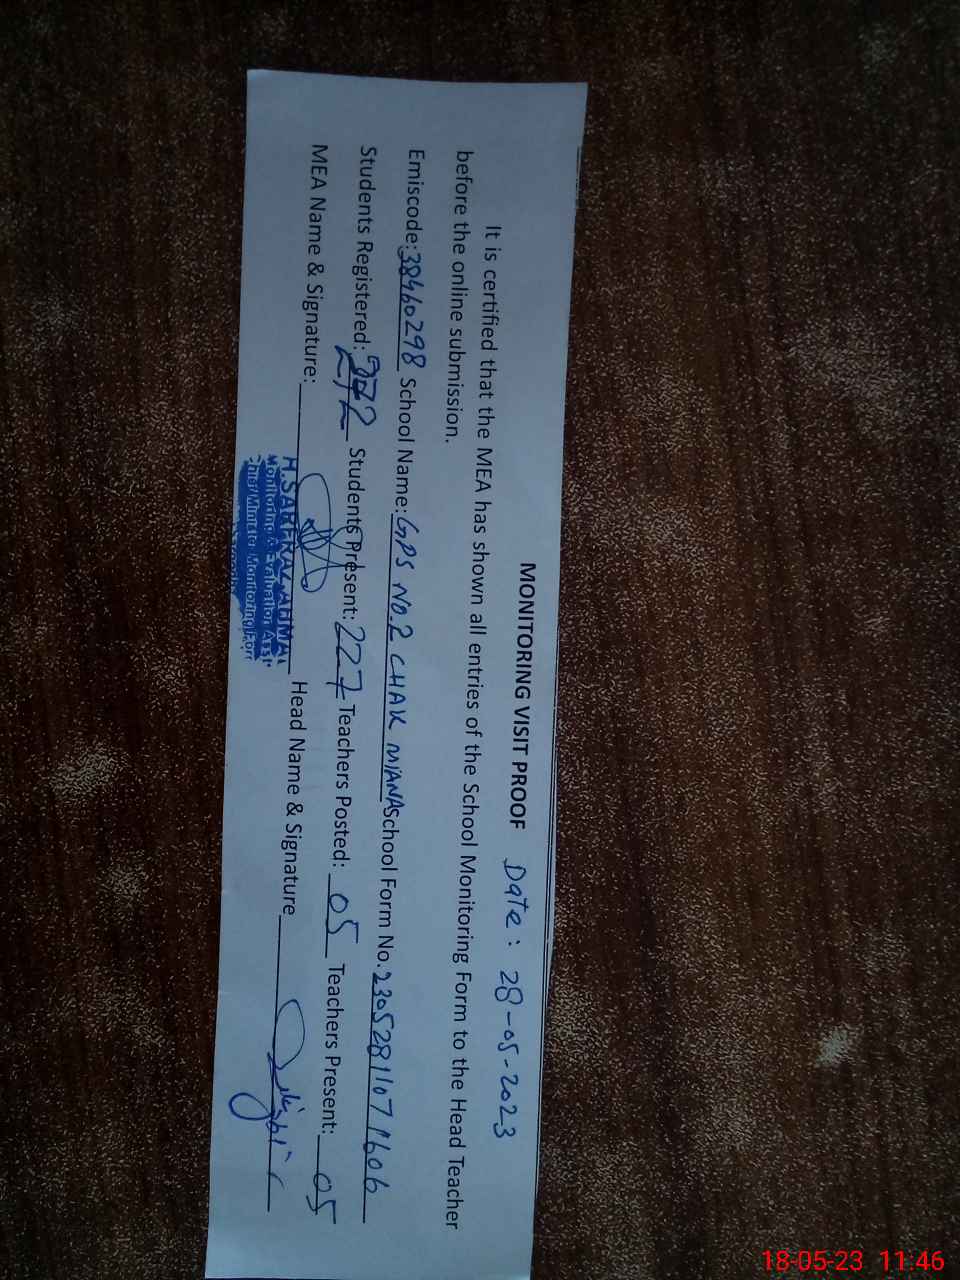 MONITORING VISIT PROOF Date: 28-05-2023
It is certified that the MEA has shown all entries of the School Monitoring Form to the Head Teacher
before the online submission.
Emiscode: 38460298 School Name: GPS No.2 CHAK MIANA School Form No. 23052811071606
Students Registered: 272 Students Present: 227 Teachers Posted: 05 Teachers Present: 05
MEA Name & Signature: Head Name & Signature
Monitoring & Evaluation
Monitoring
18-05-23 11:46